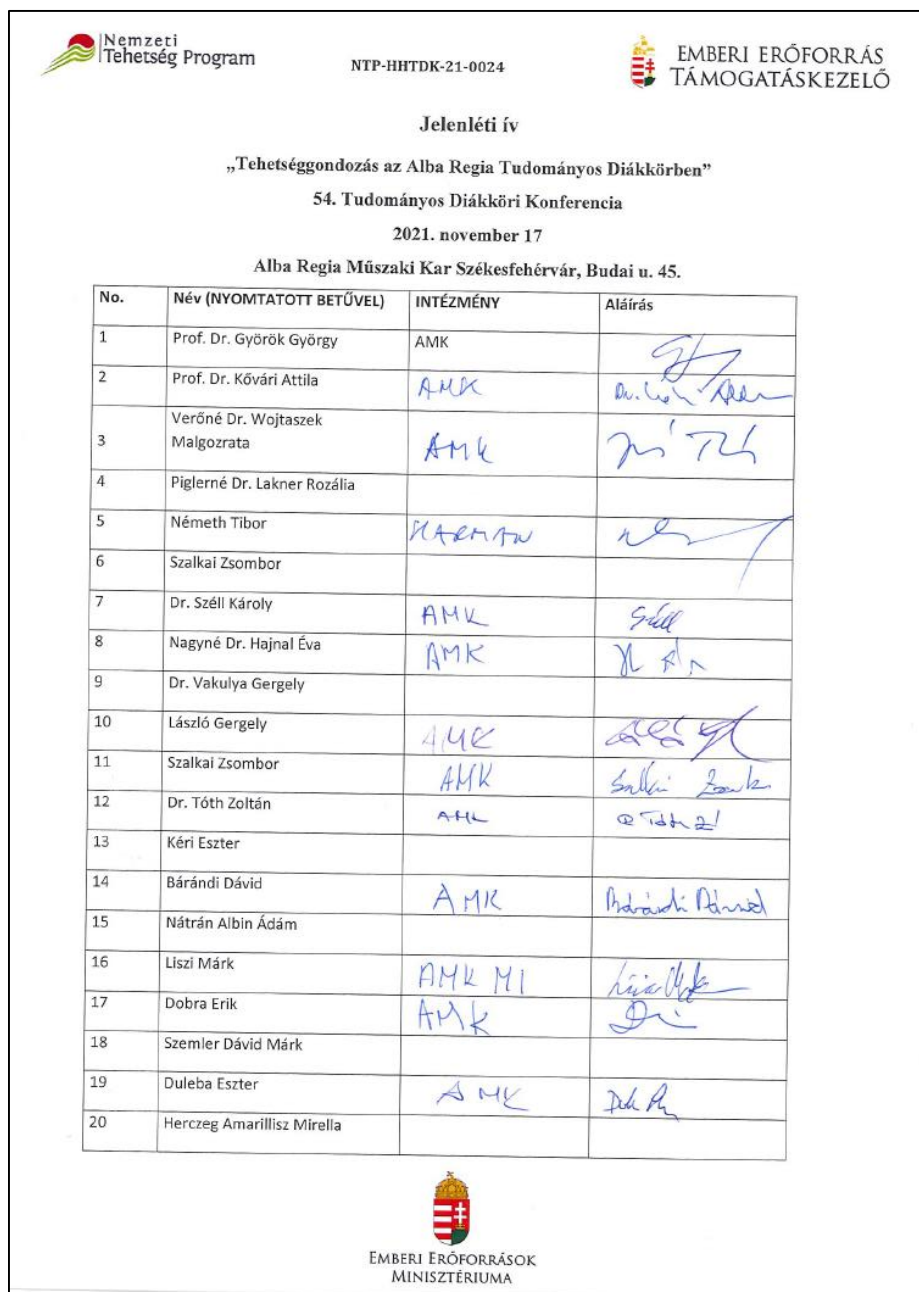 Nemzeti
Tehetség Program
NTP-HHTDK-21-0024
EMBERI ERŐFORRÁS
TÁMOGATÁSKEZELŐ
Jelenléti ív
„Tehetséggondozás az Alba Regia Tudományos Diákkörben”
54. Tudományos Diákköri Konferencia
2021. november 17
Alba Regia Műszaki Kar Székesfehérvár, Budai u. 45.
No. Név (NYOMTATOTT BETŰVEL) INTÉZMÉNY Aláírás
1 Prof. Dr. Györök György AMK
2 Prof. Dr. Kővári Attila AMK
Verőné Dr. Wojtaszek
3 Malgozrata AMK
4 Piglerné Dr. Lakner Rozália
5 Németh Tibor HARMAN
6 Szalkai Zsombor
7 Dr. Széll Károly AMK Széll
8 Nagyné Dr. Hajnal Éva AMK
9 Dr. Vakulya Gergely
10 László Gergely AMK
11 Szalkai Zsombor AMK
12 Dr. Tóth Zoltán AMK
13 Kéri Eszter
14 Bárándi Dávid AMK Bárándi Dávid
15 Nátrán Albin Ádám
16 Liszi Márk AMK MI
17 Dobra Erik AMK
18 Szemler Dávid Márk
19 Duleba Eszter AMK
20 Herczeg Amarillisz Mirella
EMBERI ERŐFORRÁSOK
MINISZTÉRIUMA